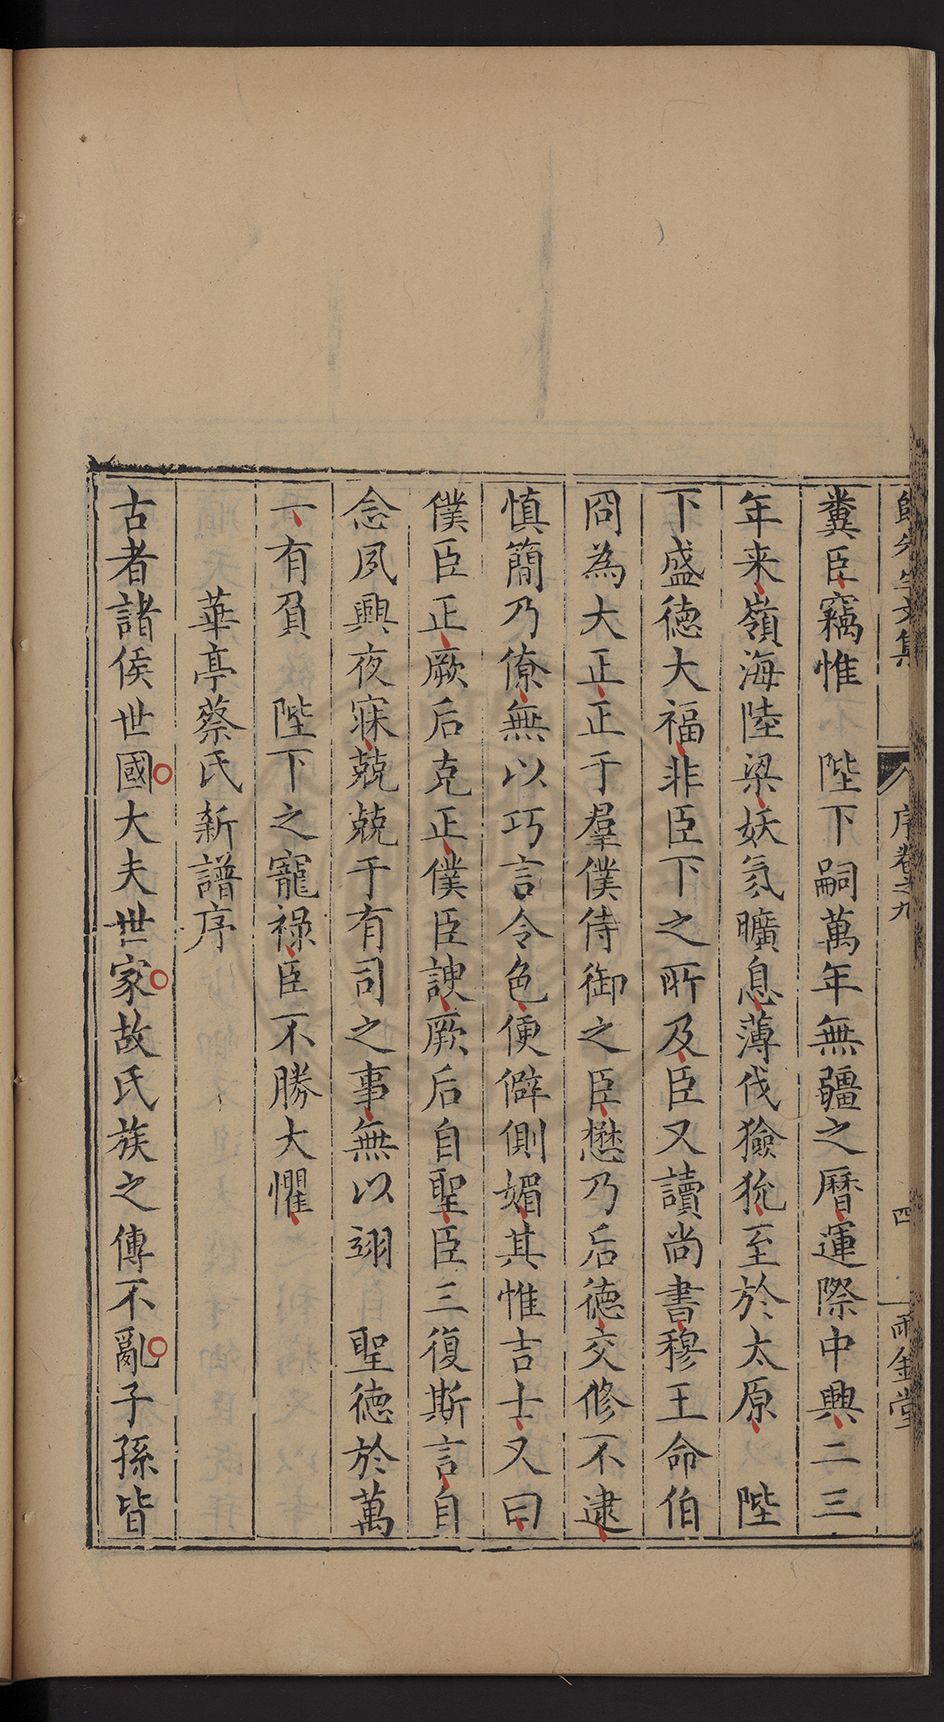 歸先生文集 序卷之九 四 雨金堂
糞臣竊惟 陛下嗣萬年無疆之曆運際中興二三
年来嶺海陸梁妖氛曠息薄伐獫狁至於太原 陛
下盛德大福非臣下之所及臣又讀尚書穆王命伯
冏為大正正于羣僕侍御之臣懋乃后德交修不逮
慎簡乃僚無以巧言令色便僻側媚其惟吉士又曰
僕臣正厥后克正僕臣諛厥后自聖臣三復斯言自
念夙興夜寐兢兢于有司之事無以翊 聖德於萬
一有負 陛下之寵祿臣不勝大懼
華亭蔡氏新譜序
古者諸侯世國大夫世家故氏族之傳不亂子孫皆